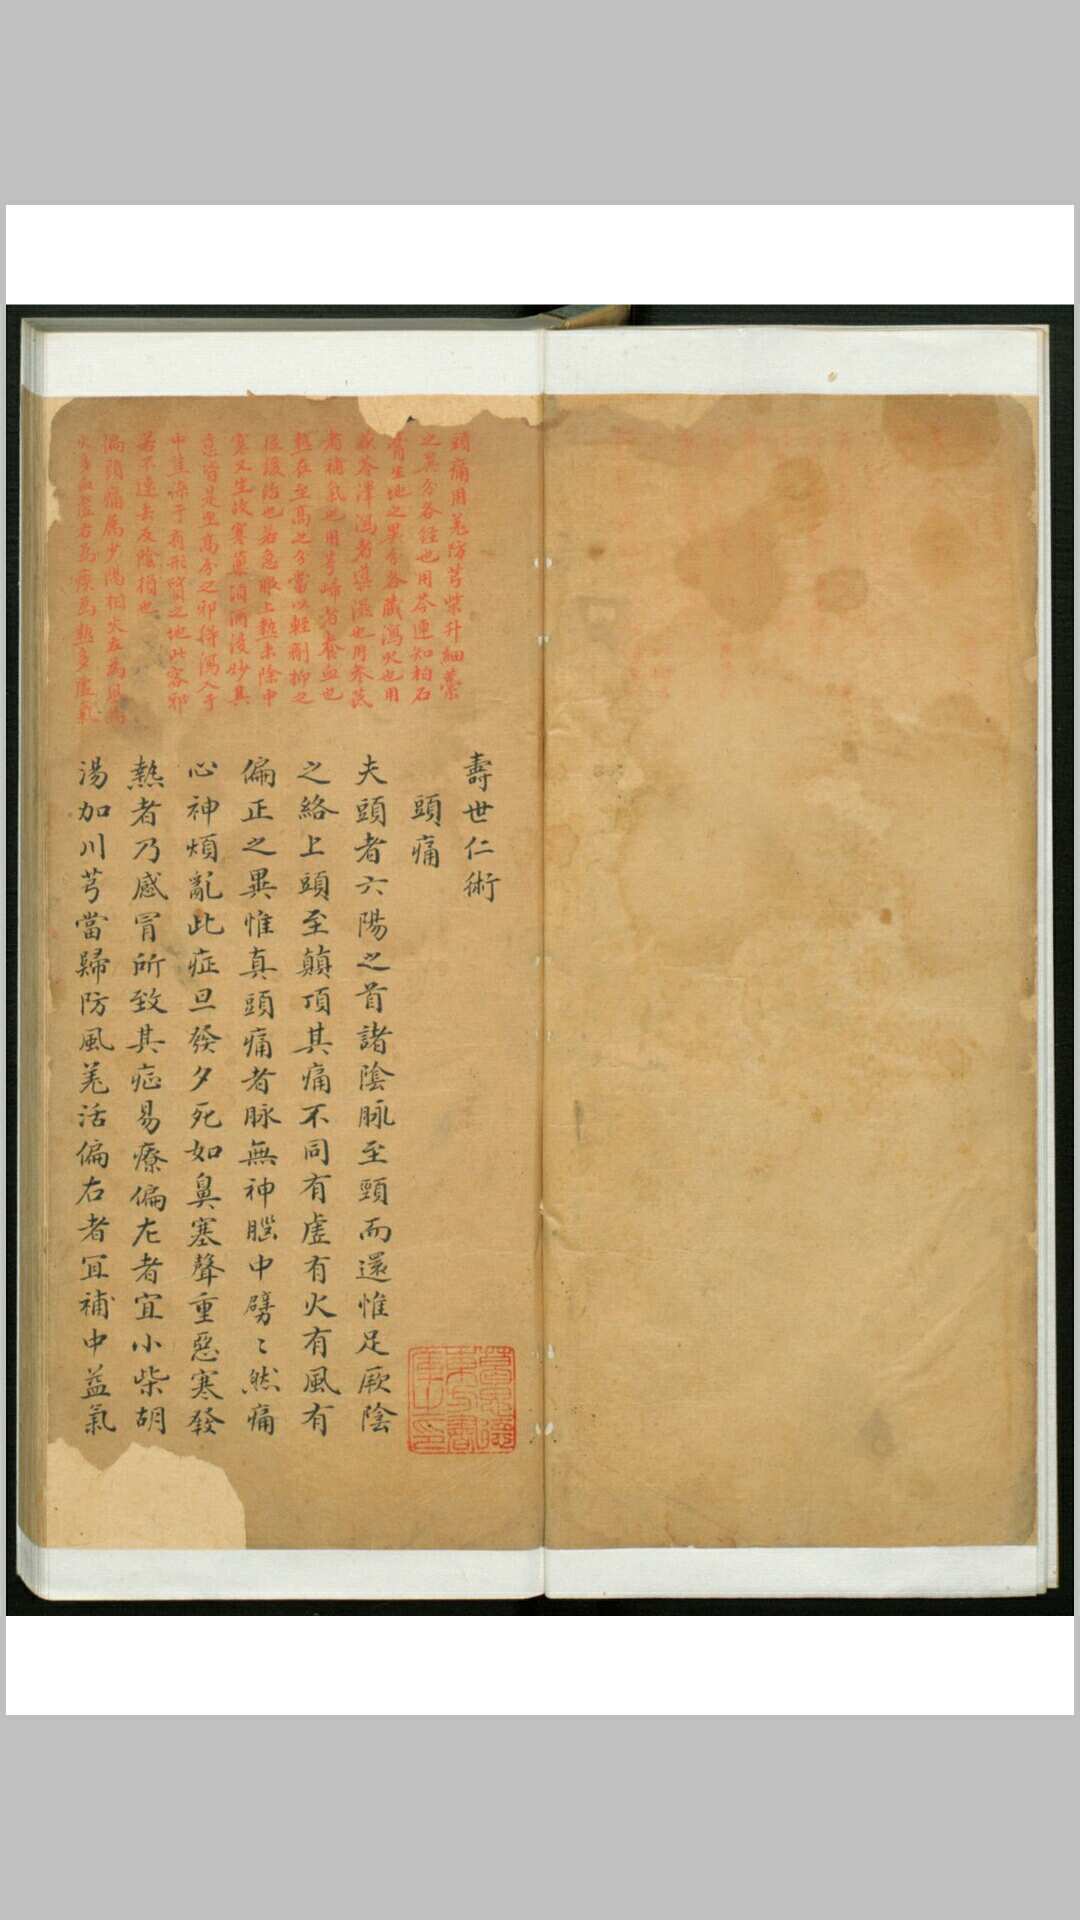 頭痛用羌防芎柴升細藁
之異分各經也用芩連知柏石
膏生地之異分各臟瀉火也用
茯苓澤瀉者導滋也用參芪
者補氣也用芎歸者養血也
熱在至高之分當以輕劑抑之
從緩治也若急服上熱未除中
寒又生故寒藥須酒浸炒真
意皆是至高分之邪得瀉入于
中薰染于有形質之地此客邪
若不速去反陰損也
偏頭痛屬少陽相火左為風為
火多血虛右為痰為熱多虛氣
壽世仁術
頭痛
夫頭者六陽之首諸陰脉至頸而還惟足厥陰
之絡上頭至顛頂其痛不同有虛有火有風有
偏正之異惟真頭痛者脉無神腦中劈〻然痛
心神煩亂此症旦發夕死如鼻塞聲重惡寒發
熱者乃感冒所致其症易療偏左者宜小柴胡
湯加川芎當歸防風羌活偏右者宜補中益氣